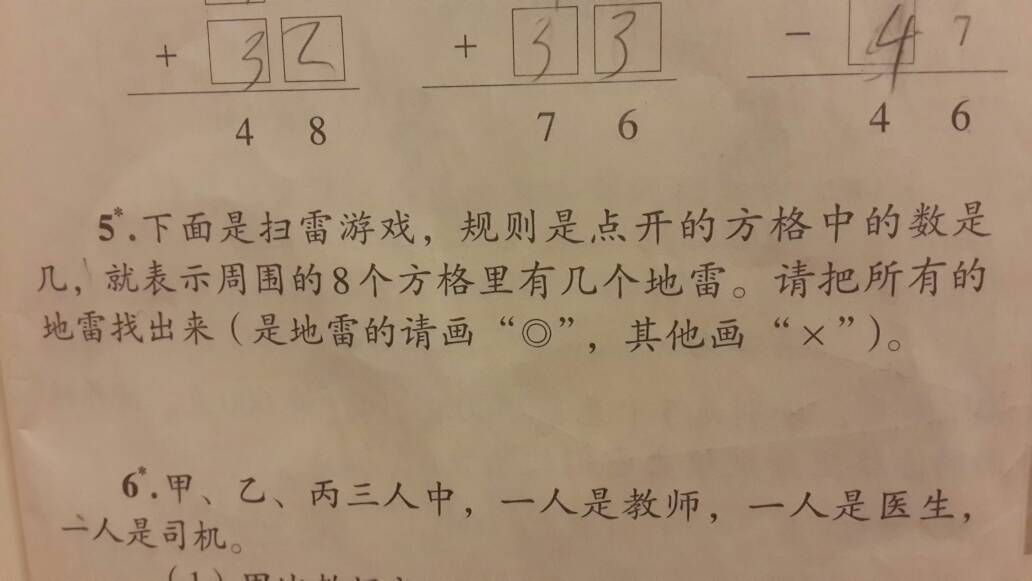 + 3 2 + 3 3 - 4 7
4 8 7 6 4 6
5*.下面是扫雷游戏，规则是点开的方格中的数是
几，就表示周围的8个方格里有几个地雷。请把所有的
地雷找出来（是地雷的请画“◎”，其他画“×”）。
6*.甲、乙、丙三人中，一人是教师，一人是医生，
一人是司机。